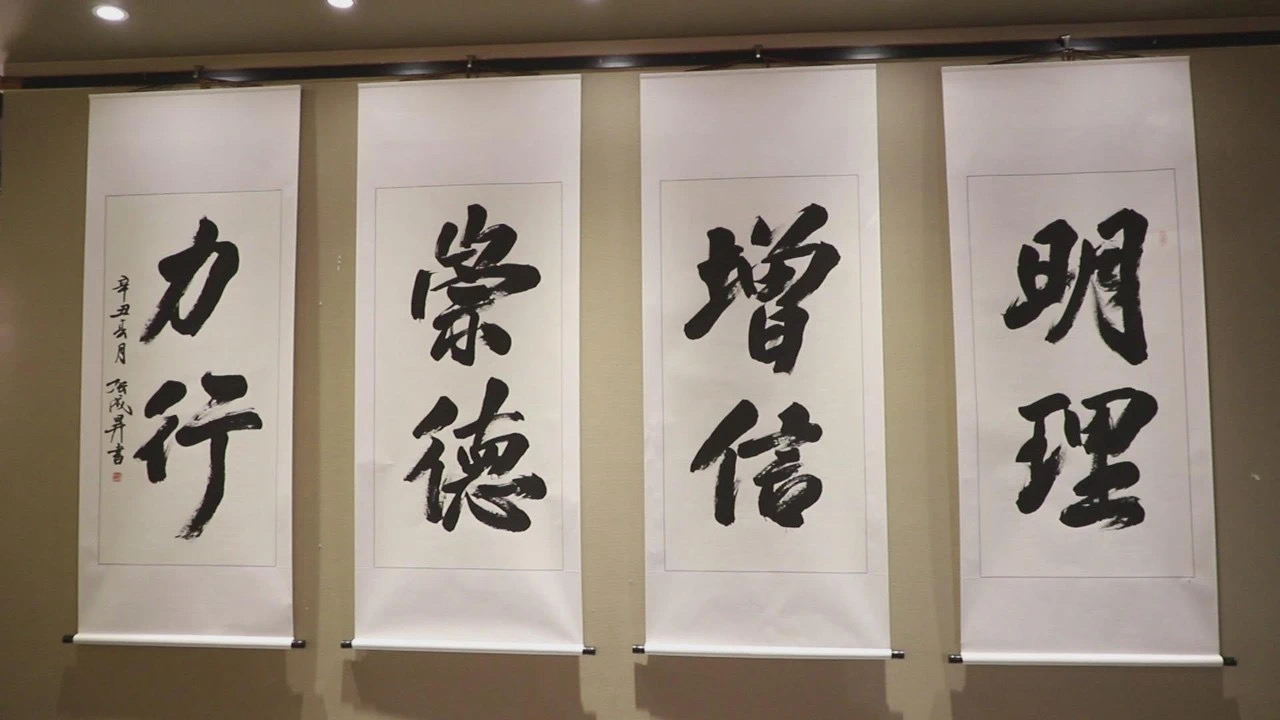 明理
增信
崇德
力行
辛丑长月
张成昇书